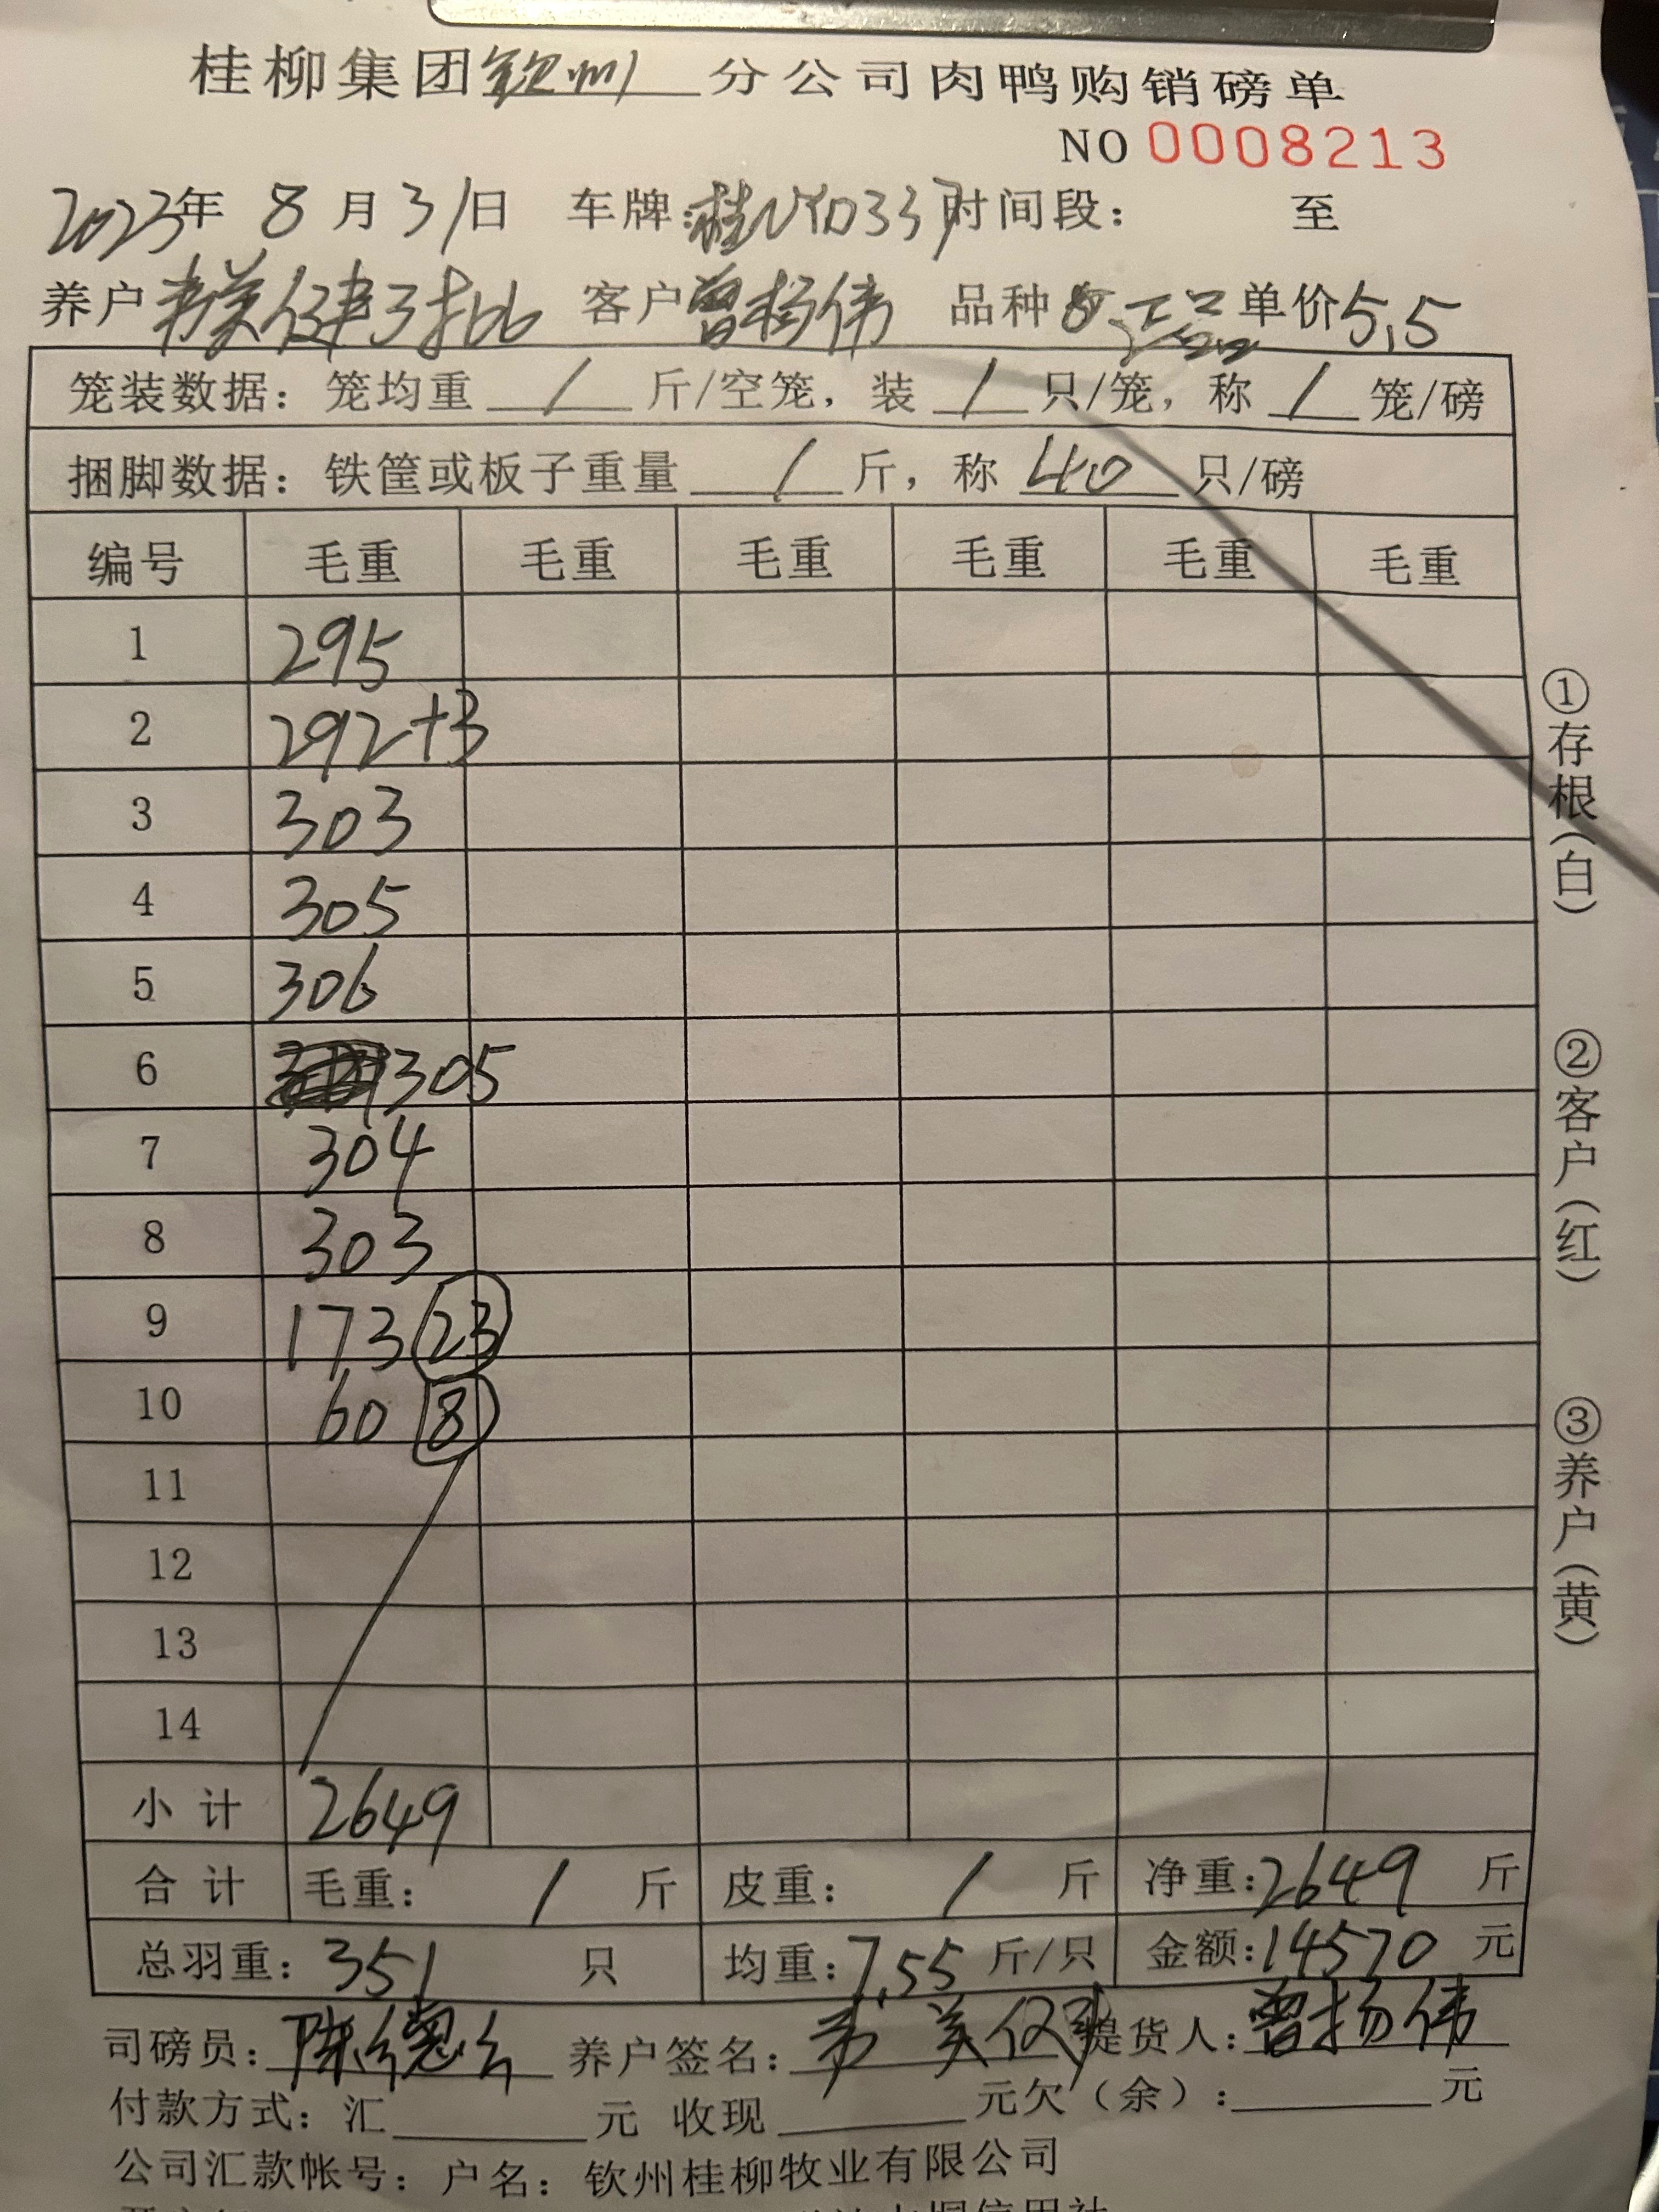 桂柳集团钦州分公司肉鸭购销磅单
NO 0008213
2023年 8 月 31日 车牌:桂NYD337时间段: 至
养户 客户曾扬伟 品种 单价5.5
笼装数据: 笼均重 / 斤/空笼, 装 / 只/笼, 称 / 笼/磅
捆脚数据: 铁筐或板子重量 / 斤, 称 40 只/磅
编号 毛重 毛重 毛重 毛重 毛重 毛重
1 295
2 292+3
3 303
4 305
5 306
6 305
7 304
8 303
9 173 23
10 60 8
11
12
13
14
小计 2649
合计 毛重: / 斤 皮重: / 斤 净重:2649 斤
总羽重: 351 只 均重:7.55 斤/只 金额:14570 元
司磅员: 陈德 养户签名: 韦美 提货人:曾扬伟
付款方式: 汇 元 收现 元欠(余): 元
公司汇款帐号: 户名: 钦州桂柳牧业有限公司
①存根(白)
②客户(红)
③养户(黄)